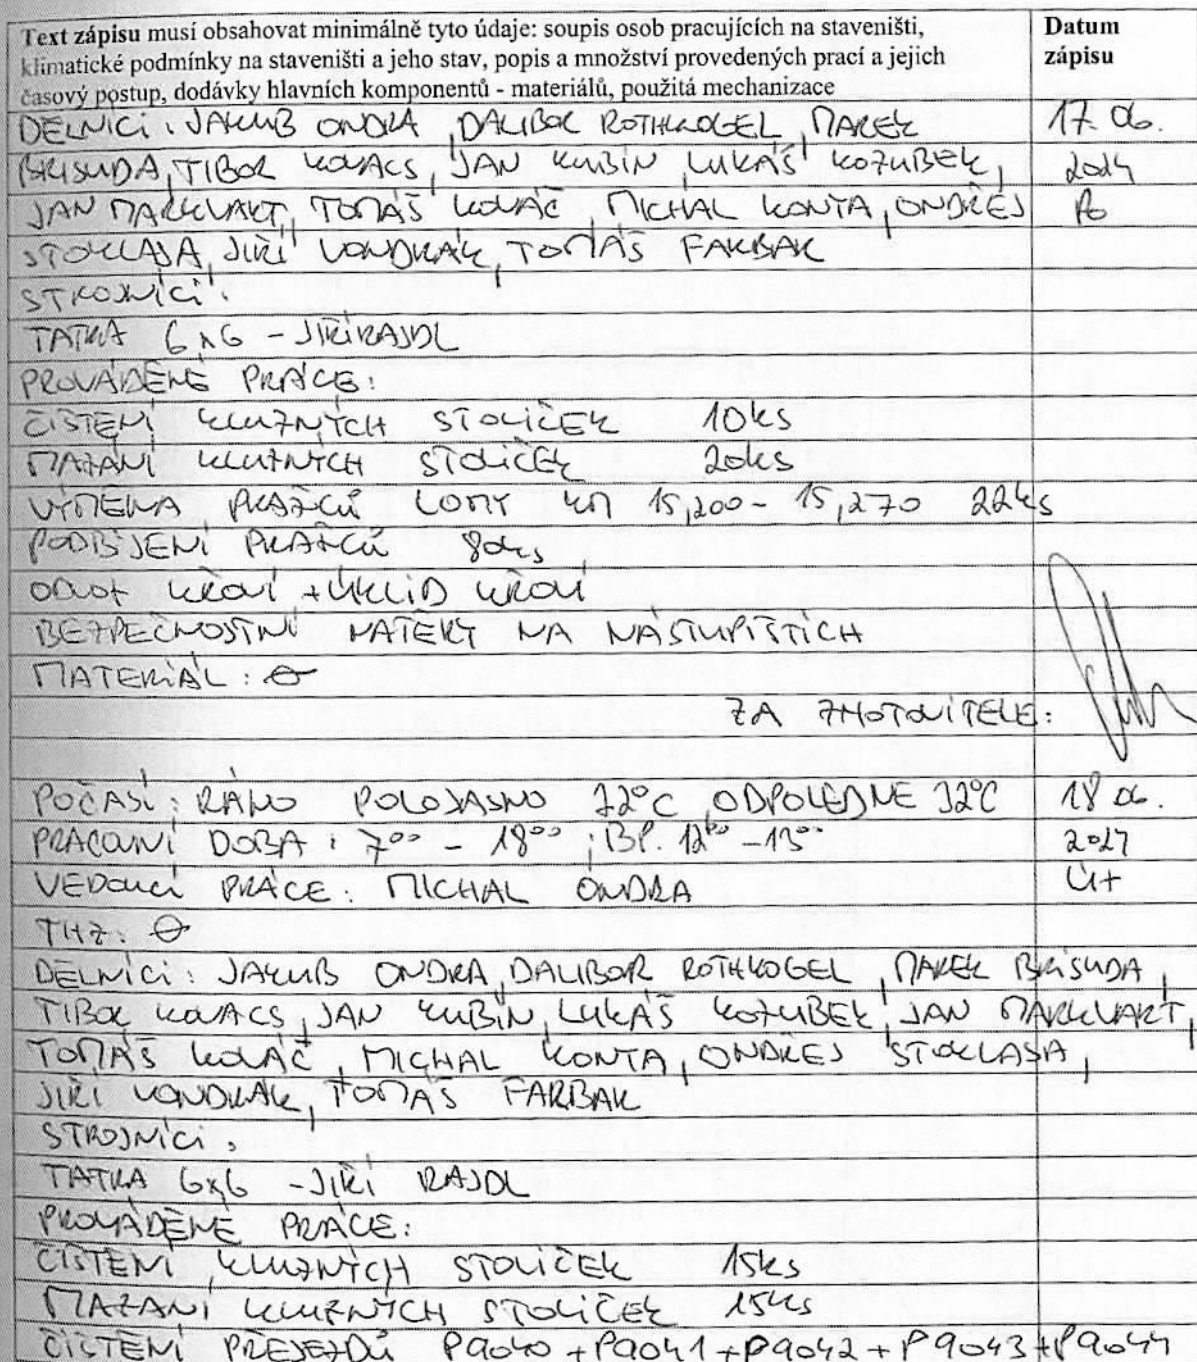 Text zápisu musí obsahovat minimálně tyto údaje: soupis osob pracujících na staveništi, Datum
klimatické podmínky na staveništi a jeho stav, popis a množství provedených prací a jejich zápisu
časový postup, dodávky hlavních komponentů - materiálů, použitá mechanizace
DĚLNÍCI: JAKUB ONDRA, DALIBOR ROTHKOGEL, MAREK 17. 06.
BRISUDA, TIBOR KOVACS, JAN KUBÍN, LUKÁŠ KOZUBEK, 2024
JAN MARKVART, TOMÁŠ KOVÁČ, MICHAL KONTA, ONDŘEJ Po
STOKLASA, JIŘÍ VONDRÁK, TOMÁŠ FARBAK
STROJNÍCI:
TATRA 6x6 - JIŘÍ RAJDL
PROVÁDĚNÉ PRÁCE:
ČIŠTĚNÍ KLUZNÝCH STOLIČEK 10ks
MAZÁNÍ KLUZNÝCH STOLIČEK 20ks
VÝMĚNA PRAŽCŮ LOMY KM 15,200 - 15,270 22ks
PODBÍJENÍ PRAŽCŮ 80ks
ODVOZ KŘOVÍ + ÚKLID KŘOVÍ
BEZPEČNOSTNÍ NÁTĚRY NA NÁSTUPIŠTÍCH
MATERIÁL: Ø
ZA ZHOTOVITELE:
POČASÍ: RÁNO POLOJASNO 22°C, ODPOLEDNE 32°C 18 06.
PRACOVNÍ DOBA: 7⁰⁰ - 18⁰⁰; BP. 12⁰⁰ - 13⁰⁰ 2024
VEDOUCÍ PRÁCE: MICHAL ONDRA Út
THZ: Ø
DĚLNÍCI: JAKUB ONDRA, DALIBOR ROTHKOGEL, MAREK BRISUDA,
TIBOR KOVACS, JAN KUBÍN, LUKÁŠ KOZUBEK, JAN MARKVART,
TOMÁŠ KOVÁČ, MICHAL KONTA, ONDŘEJ STOKLASA,
JIŘÍ VONDRÁK, TOMÁŠ FARBAK
STROJNÍCI:
TATRA 6x6 - JIŘÍ RAJDL
PROVÁDĚNÉ PRÁCE:
ČIŠTĚNÍ KLUZNÝCH STOLIČEK 15ks
MAZÁNÍ KLUZNÝCH STOLIČEK 15ks
ČIŠTĚNÍ PŘEJEZDŮ P9040 + P9041 + P9042 + P9043 + P9044